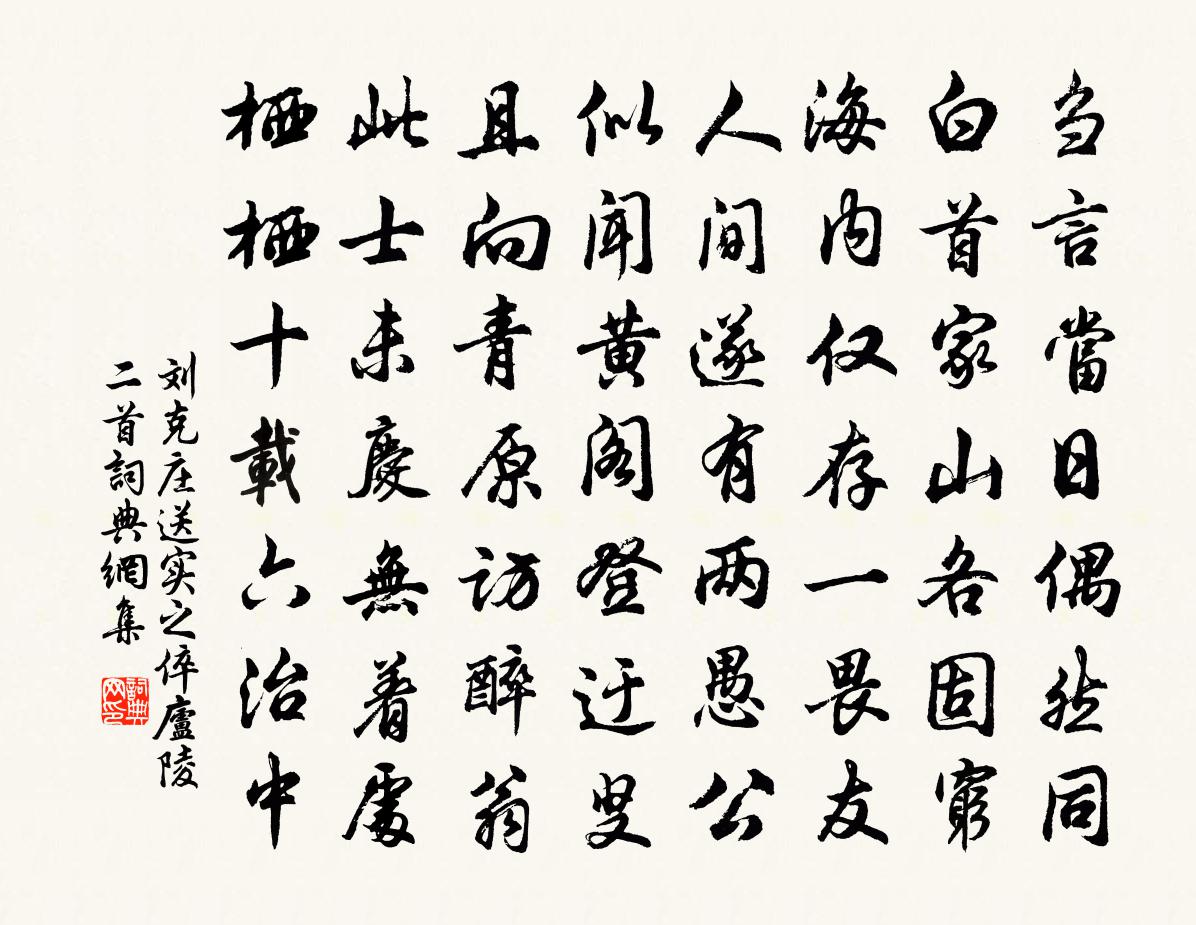 刍言當日偶然同
白首家山各固窮
海内仅存一畏友
人间遂有两愚公
似闻黄阁登迂叟
且向青原访醉翁
此士未慶無着處
栖栖十載六治中
刘克庄送实之倅廬陵
二首詞典網集
詞典
网印